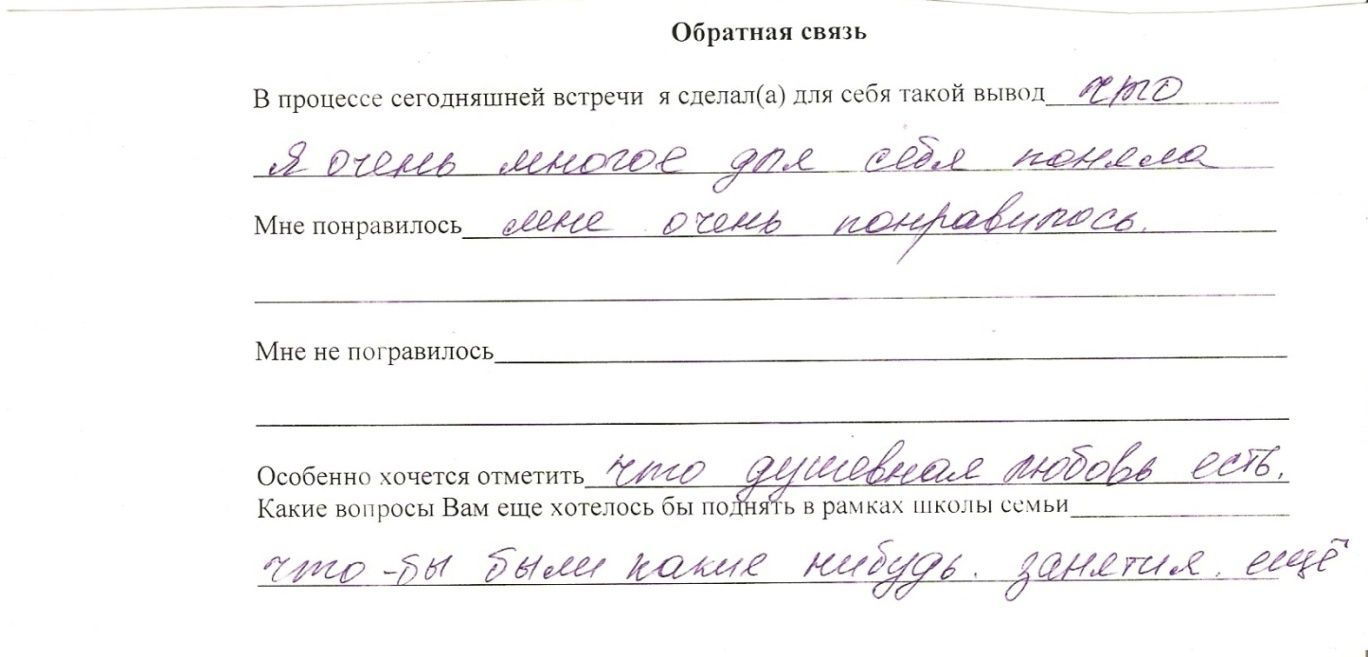 Обратная связь
В процессе сегодняшней встречи я сделал(а) для себя такой вывод что
Я очень многое для себя поняла
Мне понравилось мне очень понравилось.
Мне не погравилось
Особенно хочется отметить что душевная любовь есть.
Какие вопросы Вам еще хотелось бы поднять в рамках школы семьи
что-бы были какие нибудь. занятия. ещё